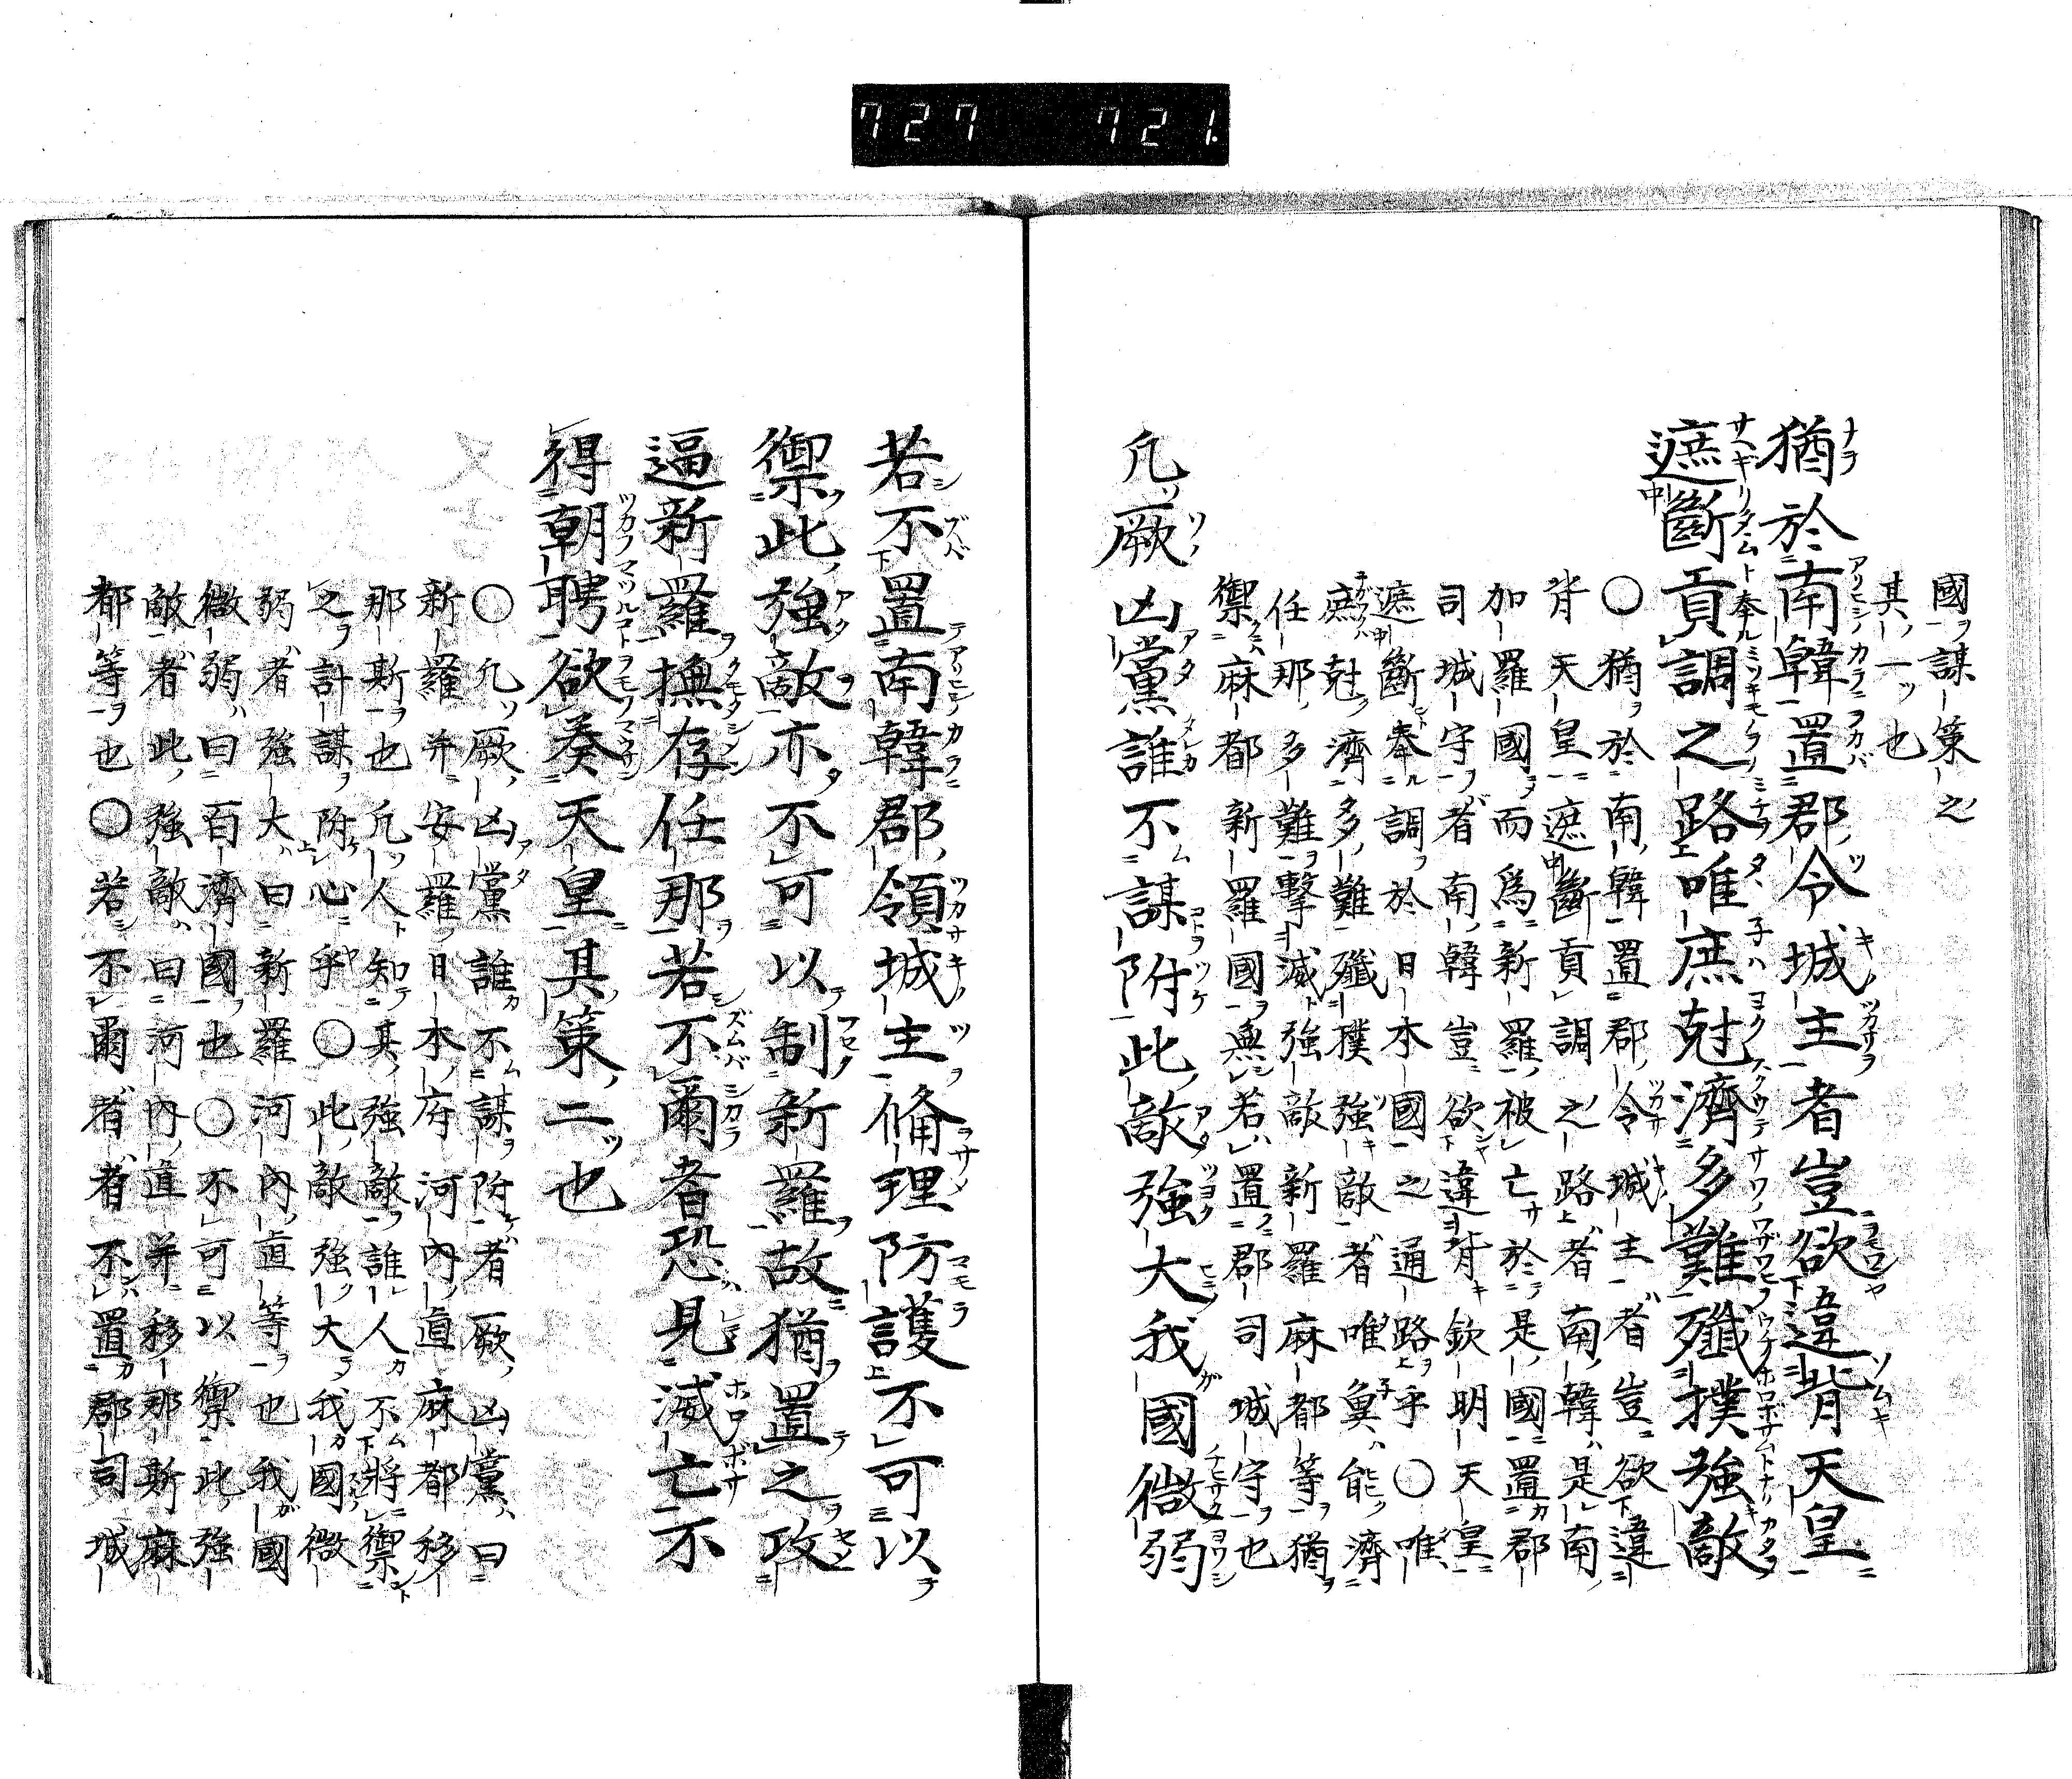 727 721.
國謀策之
其一也
猶於南韓置郡令城主者豈欲違背天皇
遮斷貢調之路唯庶尅濟多難殲撲強敵
○猶於南韓置郡令城主者豈欲違
背天皇遮斷貢調之路者南韓是南
加羅國而為新羅被亡於是國置郡
司城守者南韓豈欲違背欽明天皇
遮斷奉調於日本國之通路乎○唯
庶尅濟多難殲撲強敵者唯冀能濟
任那多難擊滅強敵新羅麻都等猶
禦麻都新羅國無若置郡司城守也
凡厥凶黨誰不謀附此敵強大我國微弱
若不置南韓郡領城主脩理防護不可以
禦此強敵亦不可以制新羅故猶置之攻
逼新羅撫存任那若不爾者恐見滅亡不
得朝聘欲奏天皇其策二也
○凡厥凶黨誰不謀附者厥凶黨曰
新羅并安羅日本府河內直麻都移
那斯也凡人知其強敵誰人不將禦
之計謀附心乎○此敵強大我國微
弱者強大曰新羅河內直等也我國
微弱曰百濟國也○不可以禦此強
敵者此強敵曰河內直并移那斯麻
都等也○若不爾者者不置郡司城